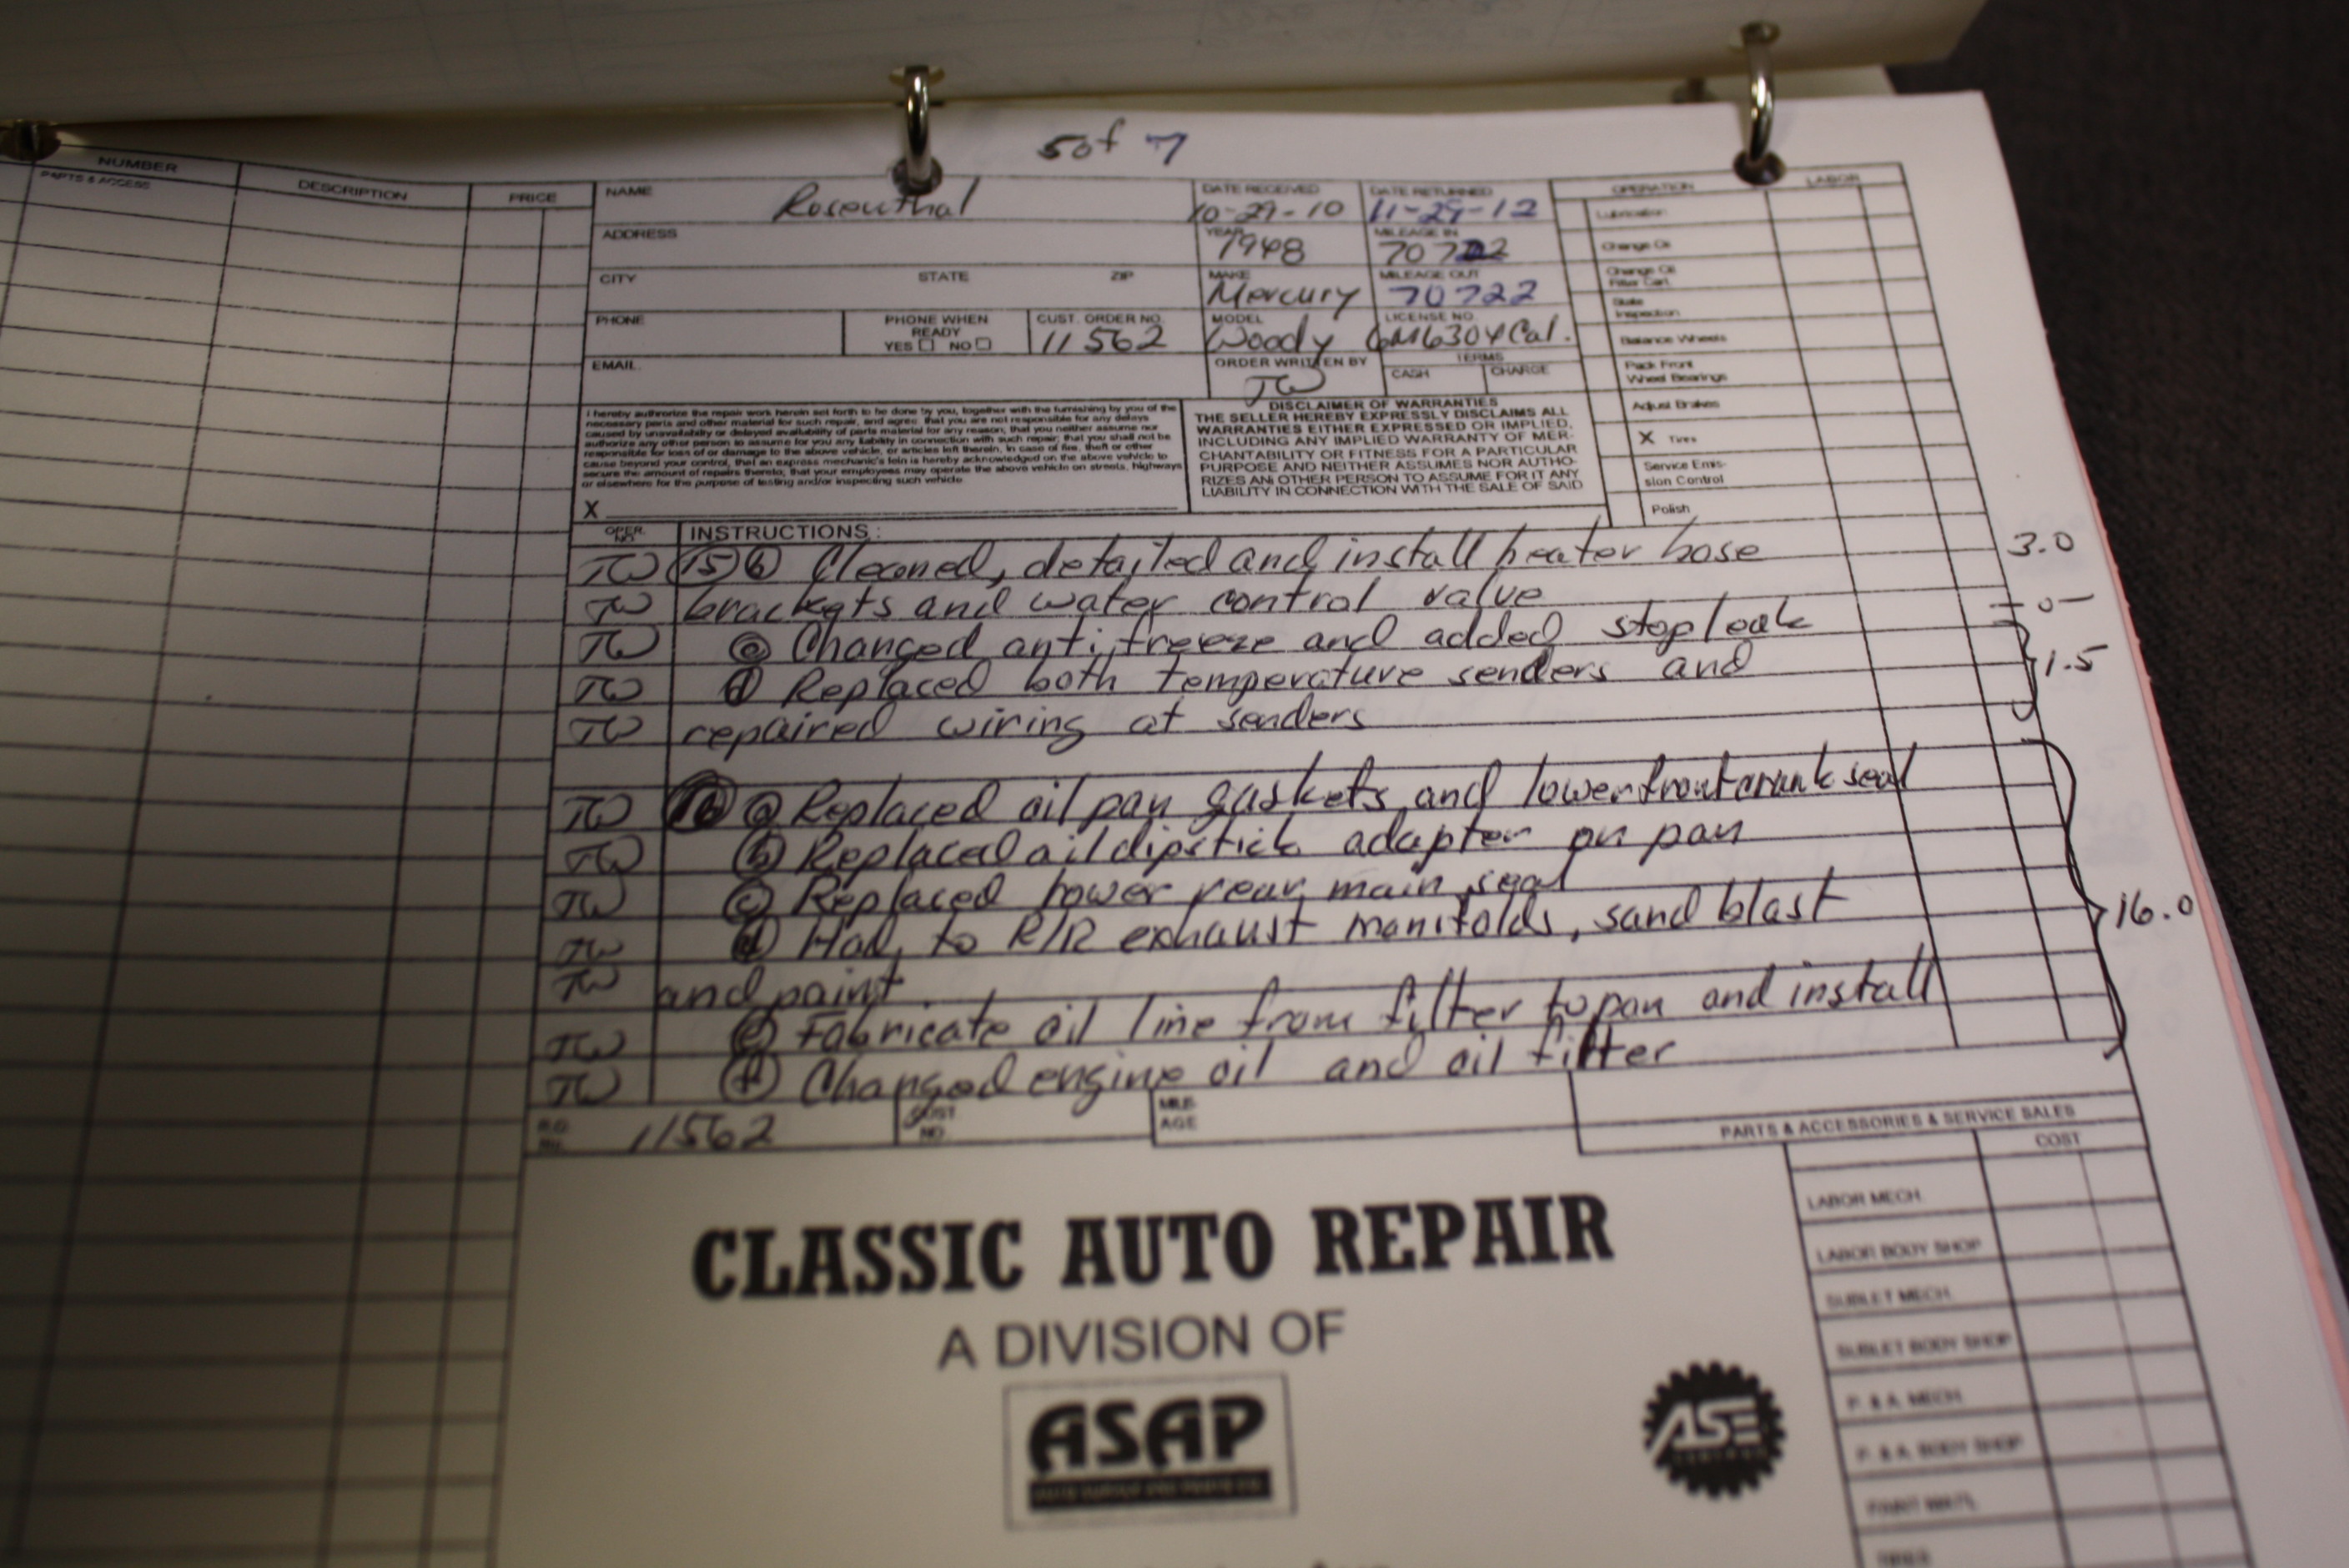 5 of 7
NUMBER
PARTS & ACCESS
DESCRIPTION
PRICE
NAME
Rosenthal
DATE RECEIVED
10-29-10
DATE RETURNED
11-29-12
OPERATION
LABOR
ADDRESS
YEAR
1948
MILEAGE IN
70722
Lubrication
Change Oil
CITY
STATE
ZIP
MAKE
Mercury
MILEAGE OUT
70722
Change Oil
Filter Cart.
State
Inspection
PHONE
PHONE WHEN
READY
YES ☐ NO ☐
CUST. ORDER NO.
11562
MODEL
Woody
LICENSE NO.
6M6304 Cal.
Balance Wheels
EMAIL
ORDER WRITTEN BY
TW
TERMS
CASH
CHARGE
Pack Front
Wheel Bearings
Adjust Brakes
X Tires
Service Emis-
sion Control
Polish
I hereby authorize the repair work herein set forth to be done by you, together with the furnishing by you of the
necessary parts and other material for such repair, and agree that you are not responsible for any delays
caused by unavailability or delayed availability of parts material for any reason; that you neither assume nor
authorize any other person to assume for you any liability in connection with such repair; that you shall not be
responsible for loss of or damage to the above vehicle, or articles left therein, in case of fire, theft or other
cause beyond your control; that an express mechanic's lein is hereby acknowledged on the above vehicle to
secure the amount of repairs thereto; that your employees may operate the above vehicle on streets, highways
or elsewhere for the purpose of testing and/or inspecting such vehicle.
X
DISCLAIMER OF WARRANTIES
THE SELLER HEREBY EXPRESSLY DISCLAIMS ALL
WARRANTIES EITHER EXPRESSED OR IMPLIED,
INCLUDING ANY IMPLIED WARRANTY OF MER-
CHANTABILITY OR FITNESS FOR A PARTICULAR
PURPOSE AND NEITHER ASSUMES NOR AUTHO-
RIZES AN OTHER PERSON TO ASSUME FOR IT ANY
LIABILITY IN CONNECTION WITH THE SALE OF SAID
OPER.
NO.
INSTRUCTIONS:
TW 15 b Cleaned, detailed and install heater hose 3.0
TW brackets and water control valve -0-
TW c Changed antifreeze and added stop leak
TW d Replaced both temperature senders and 1.5
TW repaired wiring at senders
TW 16 a Replaced oil pan gaskets and lower front crank seal
TW b Replaced oil dipstick adapter on pan
TW c Replaced lower rear main seal
TW d Had to R/R exhaust manifolds, sand blast 16.0
TW and paint
TW e Fabricate oil line from filter to pan and install
TW f Changed engine oil and oil filter
R.O.
No.
11562
CUST
NO.
MILE
AGE
PARTS & ACCESSORIES & SERVICE SALES
COST
LABOR MECH.
LABOR BODY SHOP
SUBLET MECH.
SUBLET BODY SHOP
P. & A. MECH.
P. & A. BODY SHOP
PAINT MAT'L
TIRES
CLASSIC AUTO REPAIR
A DIVISION OF
ASAP
ASE
CERTIFIED